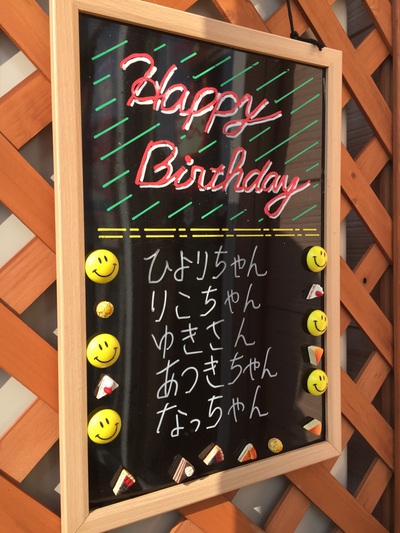 Happy
Birthday
ひよりちゃん
りこちゃん
ゆきさん
あつきちゃん
なっちゃん